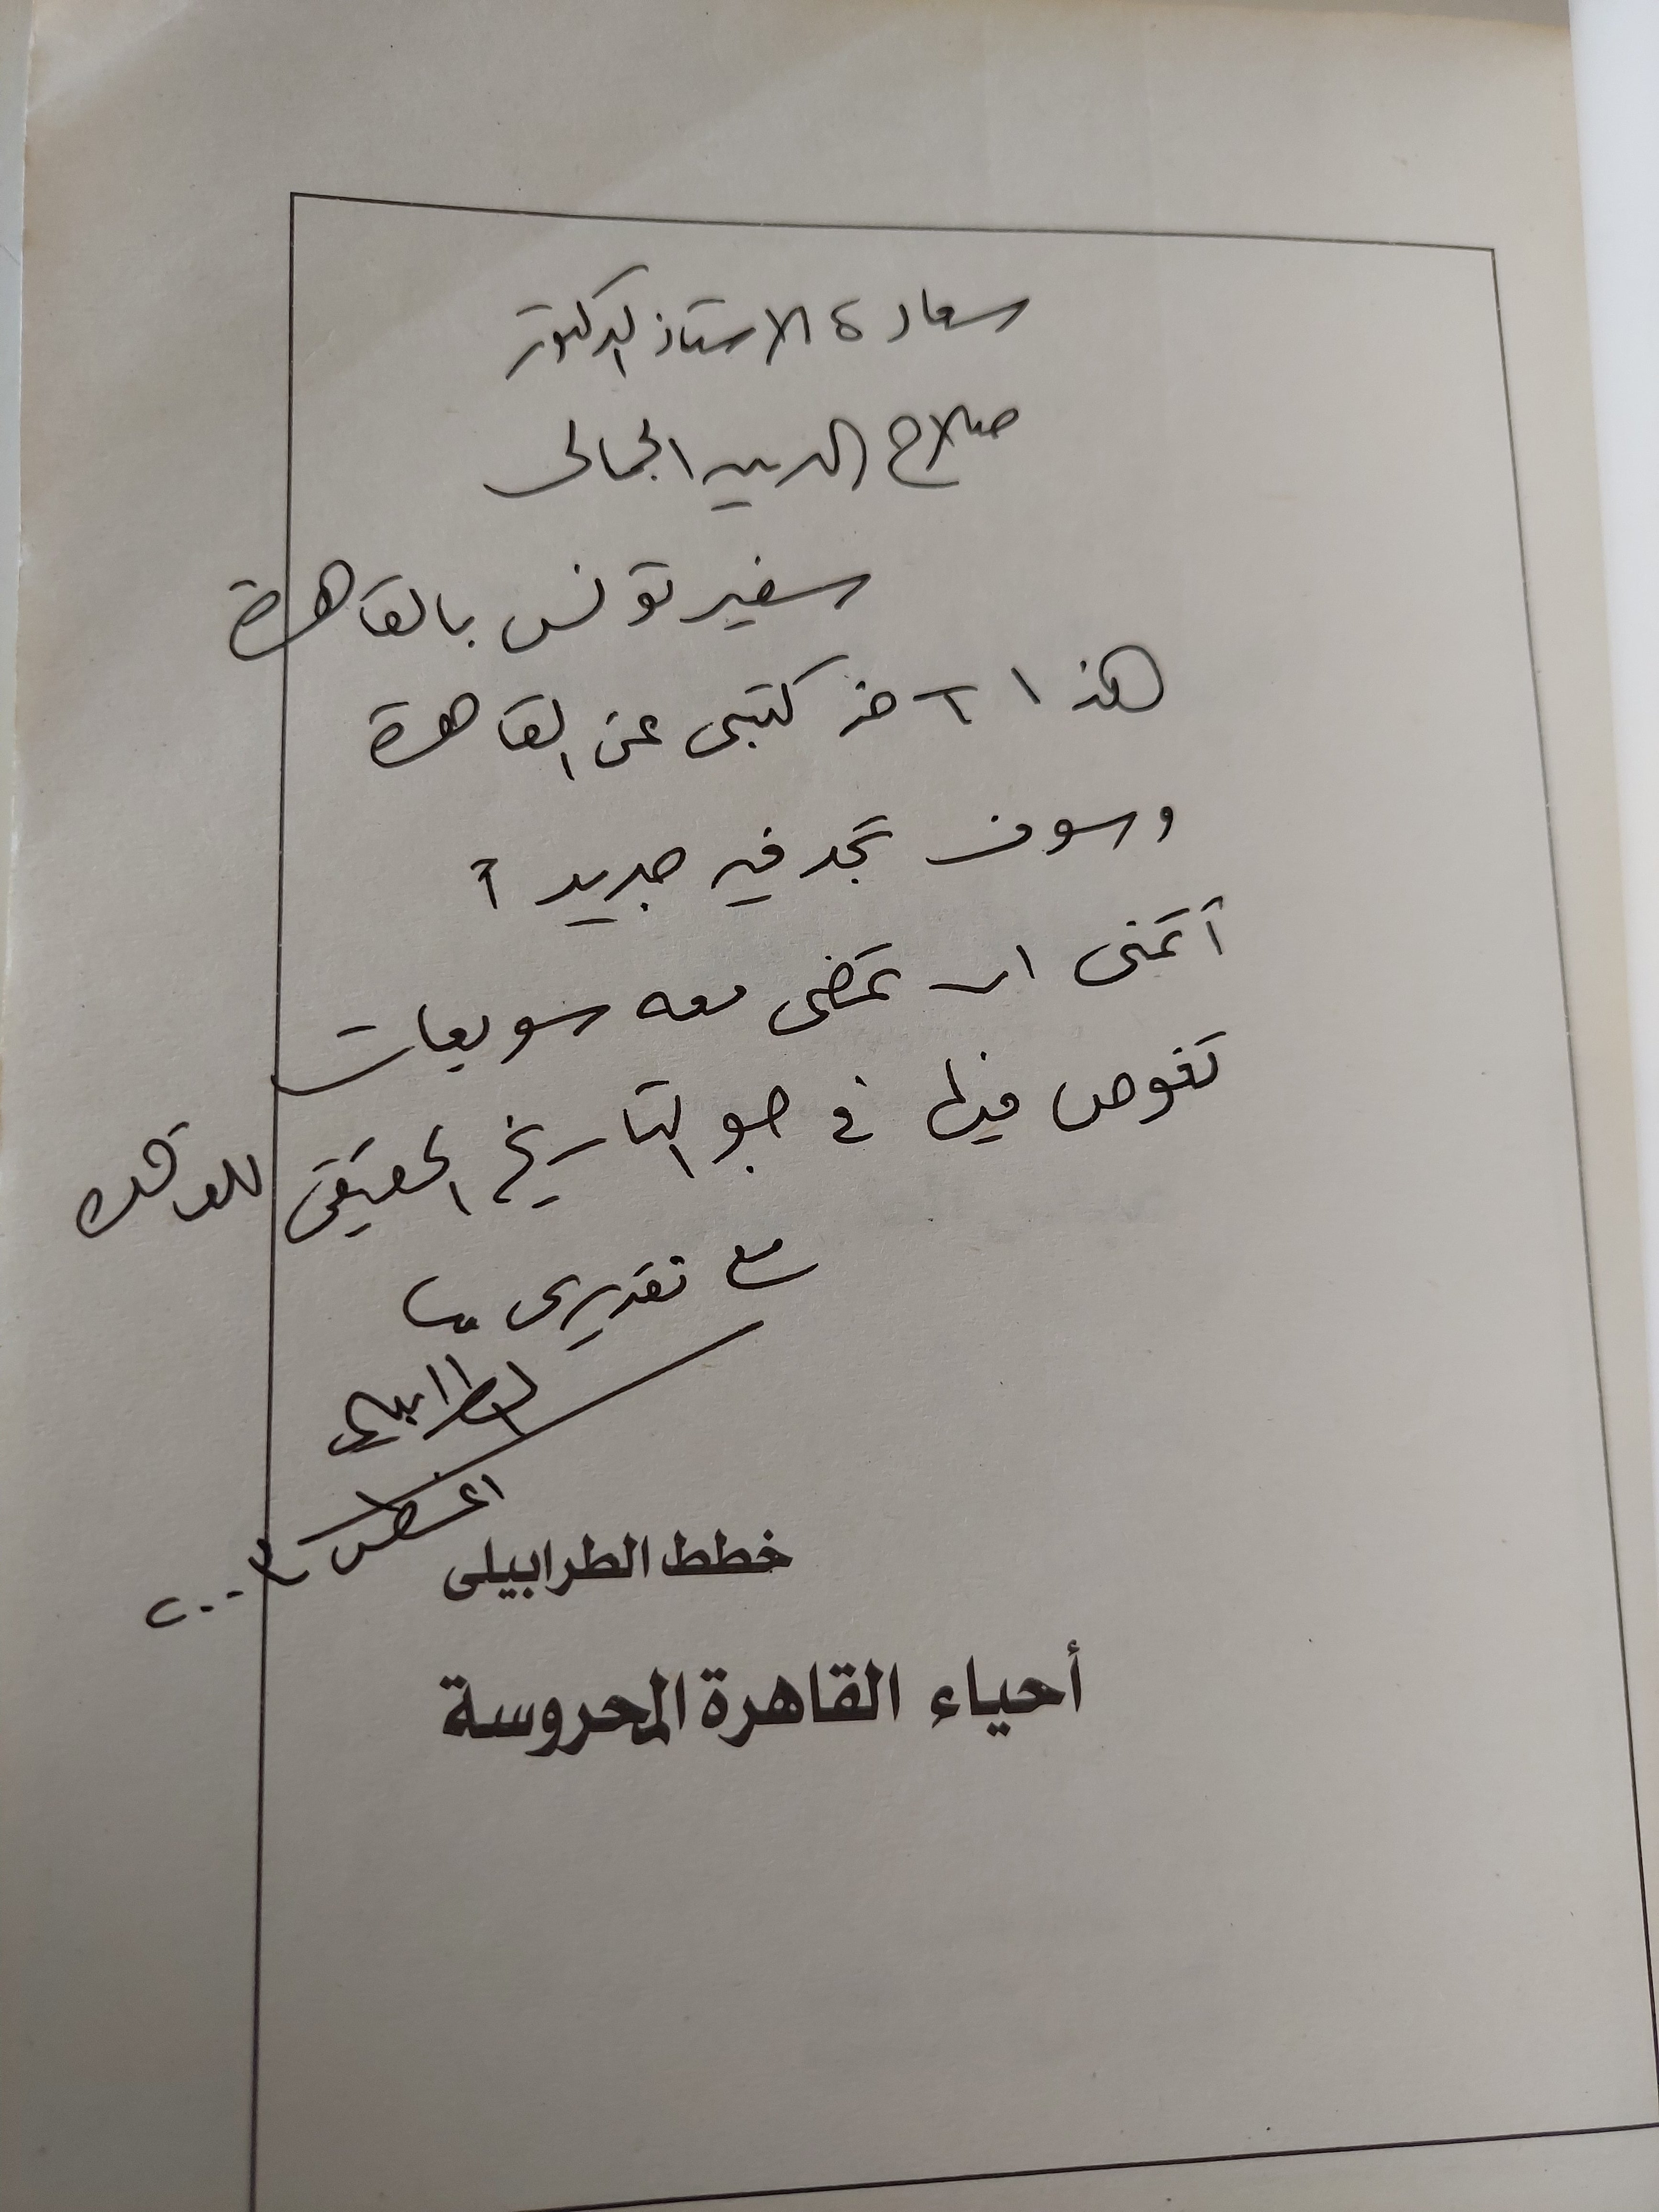 سعادة الاستاذ الدكتور
صلاح الدين الجمالى
سفير تونس بالقاهرة
هذا آخر كتبى عن القاهرة
وسوف تجد فيه جديداً
أتمنى ان تمضى معه سويعات
تغوص فيها فى جو التاريخ الحقيقى للقاهرة
مع تقديرى
الطرابيلى
اغسطس ٢٠٠٣
خطط الطرابيلى
أحياء القاهرة المحروسة